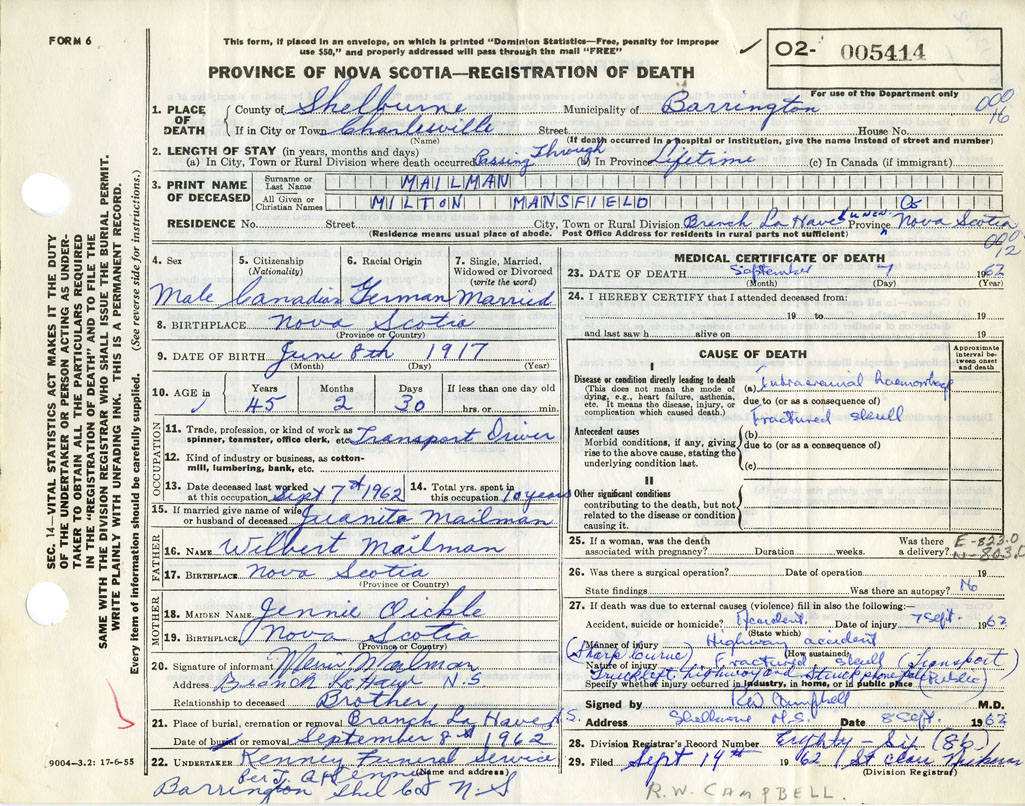 FORM 6
This form, if placed in an envelope, on which is printed "Dominion Statistics—Free, penalty for improper
use $50," and properly addressed will pass through the mail "FREE"
02- 005414
For use of the Department only
PROVINCE OF NOVA SCOTIA—REGISTRATION OF DEATH
1. PLACE OF DEATH County of Shelburne Municipality of Barrington
If in City or Town Charlesville Street House No.
(Name) (If death occurred in a hospital or institution, give the name instead of street and number)
2. LENGTH OF STAY (in years, months and days)
(a) In City, Town or Rural Division where death occurred Passing Through (b) In Province Lifetime (c) In Canada (if immigrant)
3. PRINT NAME OF DECEASED Surname or Last Name MAILMAN
All Given or Christian Names MILTON MANSFIELD
RESIDENCE No. Street City, Town or Rural Division Branch La Have Lunen. Province Nova Scotia
(Residence means usual place of abode. Post Office Address for residents in rural parts not sufficient)
4. Sex 5. Citizenship (Nationality) 6. Racial Origin 7. Single, Married, Widowed or Divorced (write the word)
Male Canadian German Married
8. BIRTHPLACE Nova Scotia
(Province or Country)
9. DATE OF BIRTH June 8th 1917
(Month) (Day) (Year)
10. AGE in Years Months Days If less than one day old
45 2 30 hrs. or min.
OCCUPATION
11. Trade, profession, or kind of work as spinner, teamster, office clerk, etc. Transport Driver
12. Kind of industry or business, as cotton-mill, lumbering, bank, etc.
13. Date deceased last worked at this occupation Sept 7th 1962
14. Total yrs. spent in this occupation 10 years
15. If married give name of wife or husband of deceased Juanita Mailman
FATHER
16. NAME Wilbert Mailman
17. BIRTHPLACE Nova Scotia
(Province or Country)
MOTHER
18. MAIDEN NAME Jennie Oickle
19. BIRTHPLACE Nova Scotia
(Province or Country)
20. Signature of informant Mailman
Address Branch La Have N.S
Relationship to deceased Brother
21. Place of burial, cremation or removal Branch La Have N.S.
Date of burial or removal September 8th 1962
22. UNDERTAKER Kenney Funeral Service
(Name and address)
Barrington Shel Co N.S
9004—3.2: 17-6-55
MEDICAL CERTIFICATE OF DEATH
23. DATE OF DEATH September 7 1962
(Month) (Day) (Year)
24. I HEREBY CERTIFY that I attended deceased from:
19 to 19
and last saw h alive on 19
CAUSE OF DEATH
Approximate interval between onset and death
I
Disease or condition directly leading to death
(This does not mean the mode of dying, e.g., heart failure, asthenia, etc. It means the disease, injury, or complication which caused death.)
(a) Intracranial haemorrhage
due to (or as a consequence of)
Fractured skull
Antecedent causes
Morbid conditions, if any, giving rise to the above cause, stating the underlying condition last.
(b)
due to (or as a consequence of)
(c)
II
Other significant conditions
contributing to the death, but not related to the disease or condition causing it.
25. If a woman, was the death associated with pregnancy? Duration weeks. Was there a delivery?
E-823.0
N-803.0
26. Was there a surgical operation? Date of operation 19
State findings Was there an autopsy? No
27. If death was due to external causes (violence) fill in also the following:—
Accident, suicide or homicide? Accident. Date of injury 7 Sept. 1962
(State which)
Manner of injury Highway accident
(Sharp Curve) (How sustained)
Nature of injury Fractured skull (Transport)
Truck left highway and struck phone pole
Specify whether injury occurred in industry, in home, or in public place (Public)
Signed by RW Campbell M.D.
Address Shelburne N.S. Date 8 Sept. 1962
28. Division Registrar's Record Number Eighty-Six (86)
29. Filed Sept 14th 1962 St Clair
(Division Registrar)
R.W. CAMPBELL.
SEC. 14—VITAL STATISTICS ACT MAKES IT THE DUTY
OF THE UNDERTAKER OR PERSON ACTING AS UNDER-
TAKER TO OBTAIN ALL THE PARTICULARS REQUIRED
IN THE "REGISTRATION OF DEATH" AND TO FILE THE
SAME WITH THE DIVISION REGISTRAR WHO SHALL ISSUE THE BURIAL PERMIT.
WRITE PLAINLY WITH UNFADING INK. THIS IS A PERMANENT RECORD.
Every item of information should be carefully supplied. (See reverse side for instructions.)